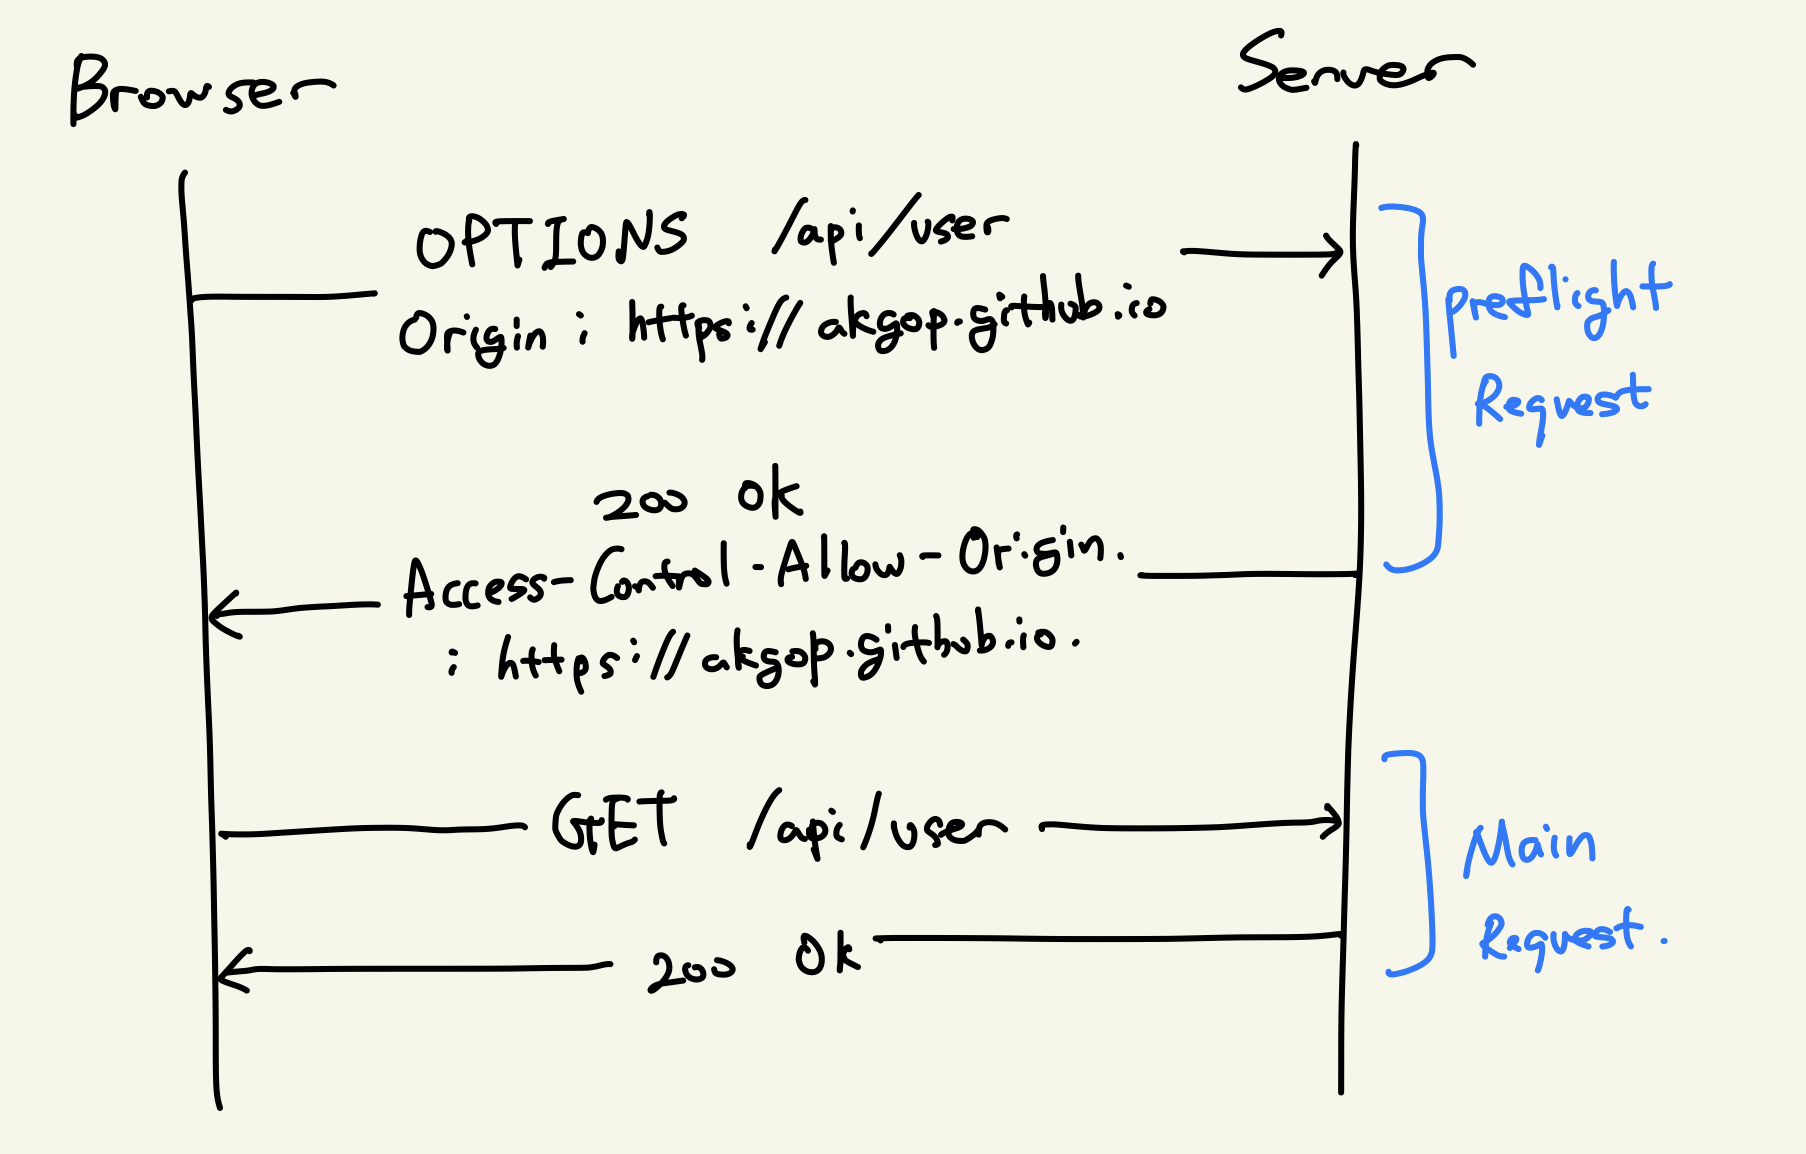 Browser
Server
OPTIONS /api/user
Origin : https://akgop.github.io
preflight
Request
200 Ok
Access-Control-Allow-Origin.
: https://akgop.github.io.
GET /api/user
Main
Request.
200 Ok